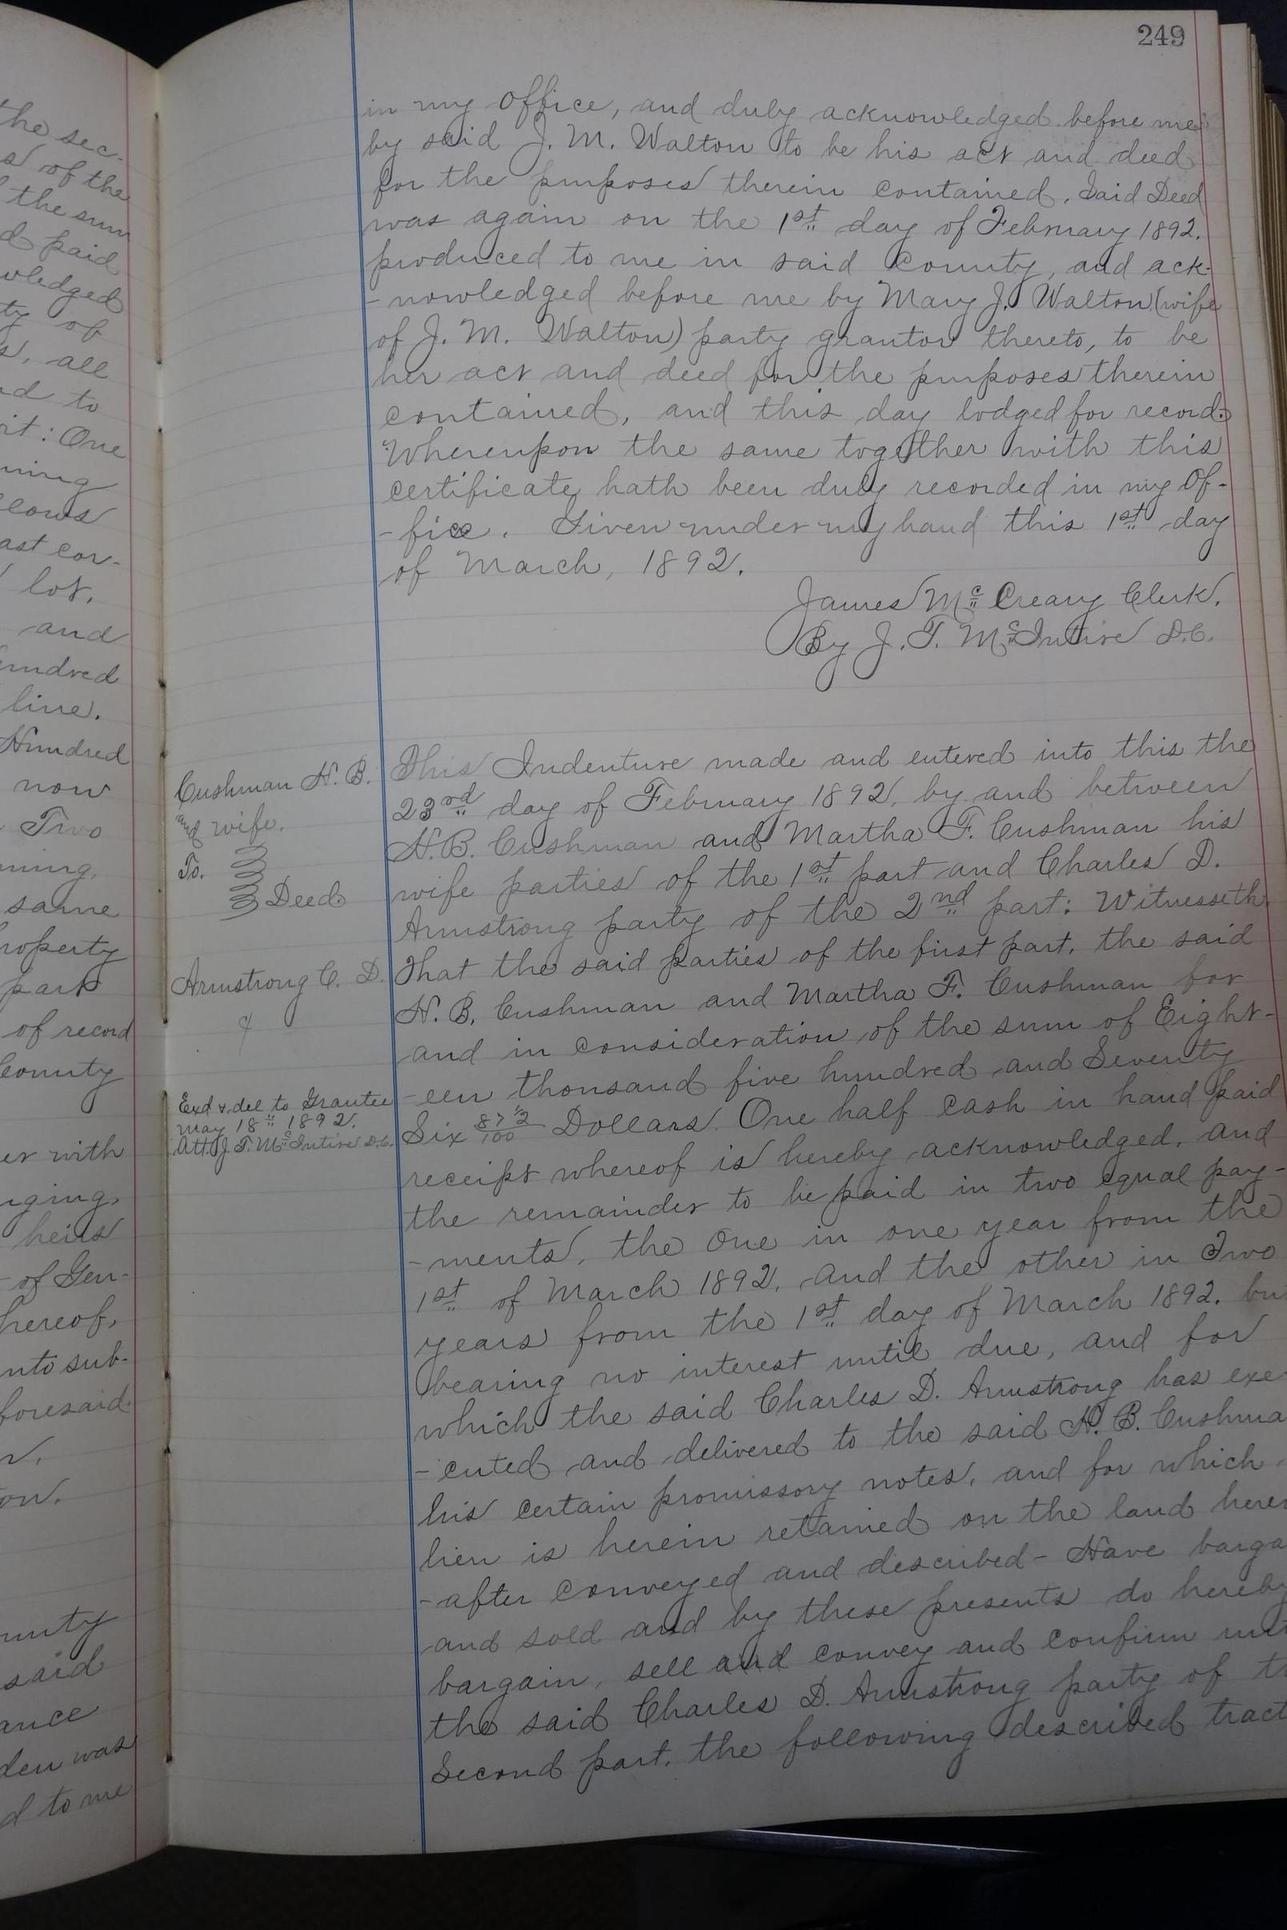 the sec-
s of the
the sum
d paid
wledged
ty of
s, all
nd to
it: One
ning
lows
ast cor-
lot,
and
hundred
line.
Hundred
now
Two
ning,
same
property
part
of record
County
er with
nging,
heirs
of Gen-
hereof,
nto sub-
foresaid
n,
on.
unty
said
ance
den was
d to me
249
in my office, and duly acknowledged before me
by said J. M. Walton to be his act and deed
for the purposes therein contained. Said Deed
was again on the 1st day of February 1892.
produced to me in said County, and ack-
-nowledged before me by Mary J. Walton (wife
of J. M. Walton) party grantor thereto, to be
her act and deed for the purposes therein
contained, and this day lodged for record.
Whereupon the same together with this
certificate hath been duly recorded in my Of-
-fice. Given under my hand this 1st day
of March, 1892.
James McCreary Clerk.
By J. T. McIntire D.C.
Cushman N. B.
and wife.
To.
Deed
Armstrong C. D.
Exd & del to Grantee
May 18" 1892.
Att. J. T. McIntire D.C.
This Indenture made and entered into this the
23rd day of February 1892, by and between
N. B. Cushman and Martha F. Cushman his
wife parties of the 1st part and Charles D.
Armstrong party of the 2nd part: Witnesseth
That the said parties of the first part, the said
N. B. Cushman and Martha F. Cushman for
and in consideration of the sum of Eight-
-een thousand five hundred and Seventy
Six 87½/100 Dollars. One half Cash in hand paid
receipt whereof is hereby acknowledged, and
the remainder to be paid in two equal pay-
-ments, the One in one year from the
1st of March 1892, and the other in Two
years from the 1st day of March 1892. bu
bearing no interest until due, and for
which the said Charles D. Armstrong has exe
-cuted and delivered to the said N. B. Cushma
his certain promissory notes, and for which
lien is herein retained on the land herein
-after Conveyed and described - Have barga
and sold and by these presents do hereby
bargain, sell and convey and confirm unto
the said Charles D. Armstrong party of t
Second part. the following described tract